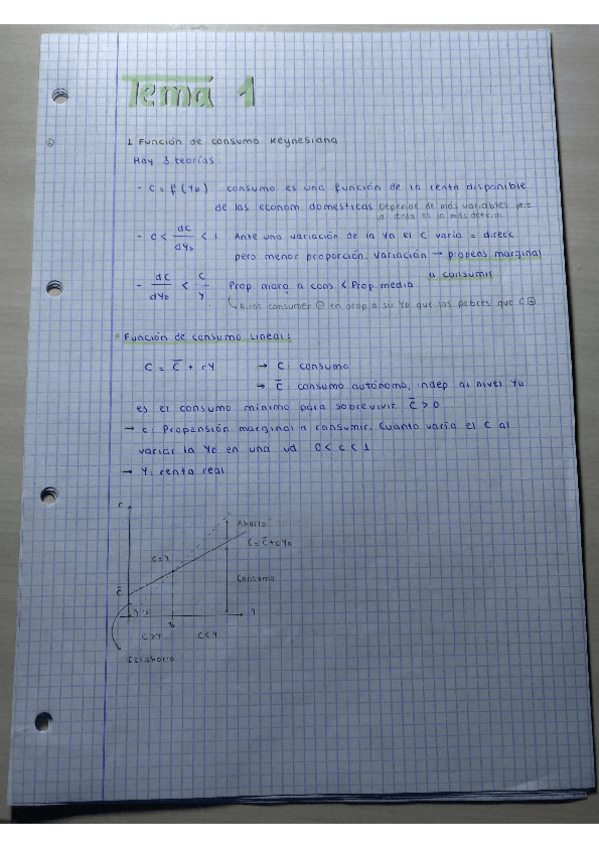 Tema 1
1 Función de consumo Keynesiana
Hay 3 teorías
- C = f (YD) consumo es una función de la renta disponible
de las econom. domésticas Depende de más variables pero
la renta es la más determ.
- 0 < dC/dYD < 1 Ante una variación de la YD el C varía = direcc
pero menor proporción. Variación → propens marginal
a consumir
- dC/dYD < C/Y Prop marg a cons < Prop. media
Ricos consumen ⊖ en prop a su YD que los pobres que C ⊕
* Función de consumo Lineal:
C = C̄ + cY → C: consumo
→ C̄: consumo autónomo, indep al nivel YD
es el consumo mínimo para sobrevivir C̄ > 0
→ c: Propensión marginal a consumir. Cuanto varía el C al
variar la YD en una ud 0 < c < 1
→ Y: renta real
C
Ahorro
C = C̄ + cYD
C = Y
Consumo
C̄
Y
C > Y
C < Y
Desahorro